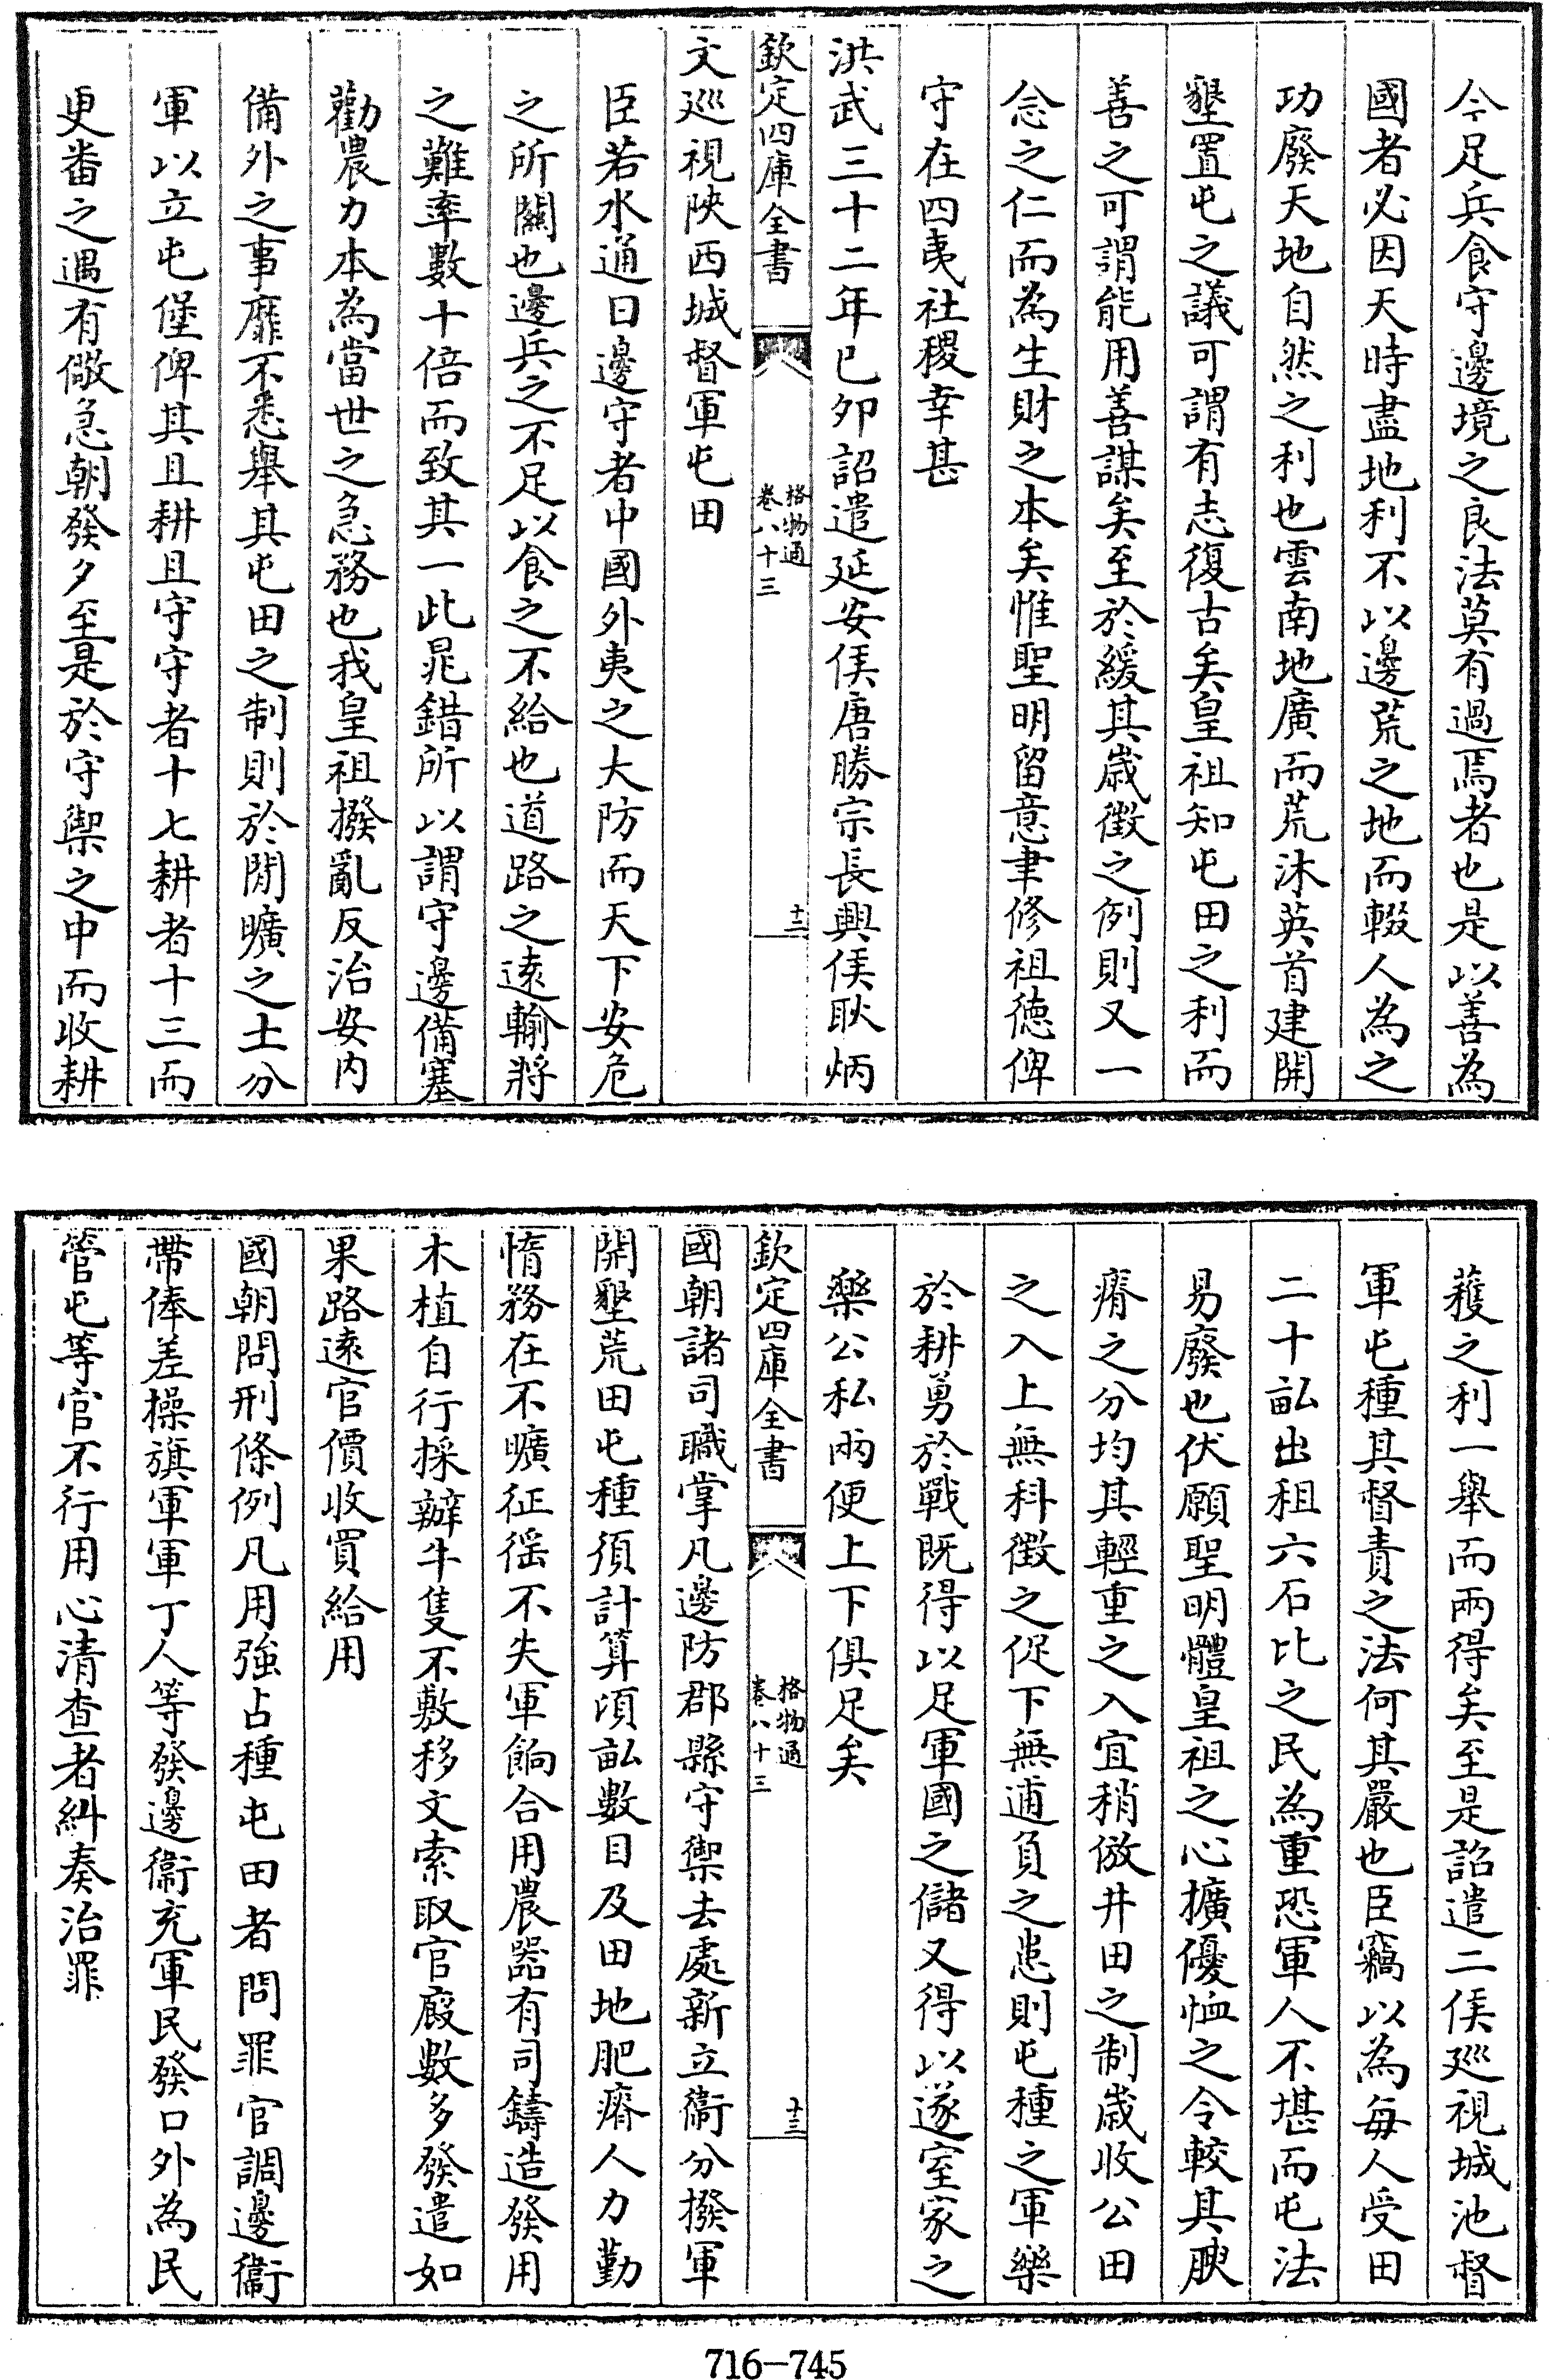 今足兵食守邊境之良法莫有過焉者也是以善為
國者必因天時盡地利不以邊荒之地而輟人為之
功廢天地自然之利也雲南地廣而荒沐英首建開
墾置屯之議可謂有志復古矣皇祖知屯田之利而
善之可謂能用善謀矣至於緩其歳徴之例則又一
念之仁而為生財之本矣惟聖明留意聿修祖徳俾
守在四夷社稷幸甚
洪武三十二年己卯詔遣延安侯唐勝宗長興侯耿炳
欽定四庫全書
格物通
卷八十三
十二
文巡視陜西城督軍屯田
臣若水通曰邊守者中國外夷之大防而天下安危
之所關也邊兵之不足以食之不給也道路之逺輸將
之難率數十倍而致其一此鼂錯所以謂守邊備塞
勸農力本為當世之急務也我皇祖撥亂反治安内
備外之事靡不悉舉其屯田之制則於閒曠之土分
軍以立屯堡俾其且耕且守守者十七耕者十三而
更畨之遇有儆急朝發夕至是於守禦之中而收耕
穫之利一舉而兩得矣至是詔遣二侯巡視城池督
軍屯種其督責之法何其嚴也臣竊以為每人受田
二十畝出租六石比之民為重恐軍人不堪而屯法
易廢也伏願聖明體皇祖之心擴優恤之令較其腴
瘠之分均其輕重之入宜稍倣井田之制歳收公田
之入上無科徴之促下無逋負之患則屯種之軍樂
於耕勇於戰既得以足軍國之儲又得以遂室家之
樂公私兩便上下俱足矣
欽定四庫全書
格物通
卷八十三
十三
國朝諸司職掌凡邊防郡縣守禦去處新立衛分撥軍
開墾荒田屯種須計算頃畝數目及田地肥瘠人力勤
惰務在不曠征徭不失軍餉合用農器有司鑄造發用
木植自行採辦牛隻不敷移文索取官廏數多發遣如
果路逺官價收買給用
國朝問刑條例凡用強占種屯田者問罪官調邊衛
帶俸差操旗軍軍丁人等發邊衛充軍民發口外為民
管屯等官不行用心清查者糾奏治罪
716-745